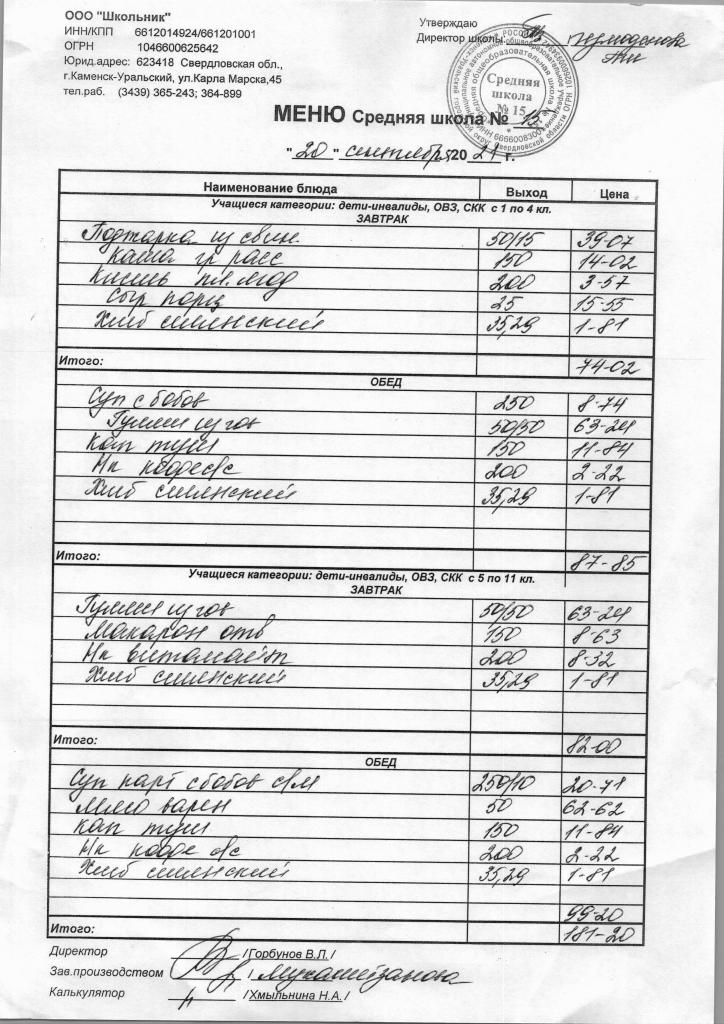 ООО "Школьник"
ИНН/КПП 6612014924/661201001
ОГРН 1046600625642
Юрид.адрес: 623418 Свердловская обл.,
г.Каменск-Уральский, ул.Карла Марска,45
тел.раб. (3439) 365-243; 364-899
Утверждаю
Директор школы:
Средняя
школа
№ 15
МЕНЮ Средняя школа № 15
"20" сентября 2021 г.
Наименование блюда Выход Цена
Учащиеся категории: дети-инвалиды, ОВЗ, СКК с 1 по 4 кл.
ЗАВТРАК
Поджарка из свин. 50/15 39-07
Каша гр расс 150 14-02
Кисель пл.ягод 200 3-57
Сыр порц 25 15-55
Хлеб смлнский 35,29 1-81
Итого: 74-02
ОБЕД
Суп с бобов 250 8-74
Гуляш из гов 50/50 63-24
Кап туш 150 11-84
Нк кофе с/с 200 2-22
Хлеб 35,29 1-81
Итого: 87-85
Учащиеся категории: дети-инвалиды, ОВЗ, СКК с 5 по 11 кл.
ЗАВТРАК
Гуляш из гов 50/50 63-24
Макарон отв 150 8-63
Нк витамаит 200 8-32
Хлеб 35,29 1-81
Итого: 82-00
ОБЕД
Суп карт с бобов с/м 250/10 20-71
Мясо варен 50 62-62
кап туш 150 11-84
Нк кофе с/с 200 2-22
Хлеб 35,29 1-81
99-20
Итого: 181-20
Директор / Горбунов В.Л. /
Зав.производством /
Калькулятор / Хмыльнина Н.А. /